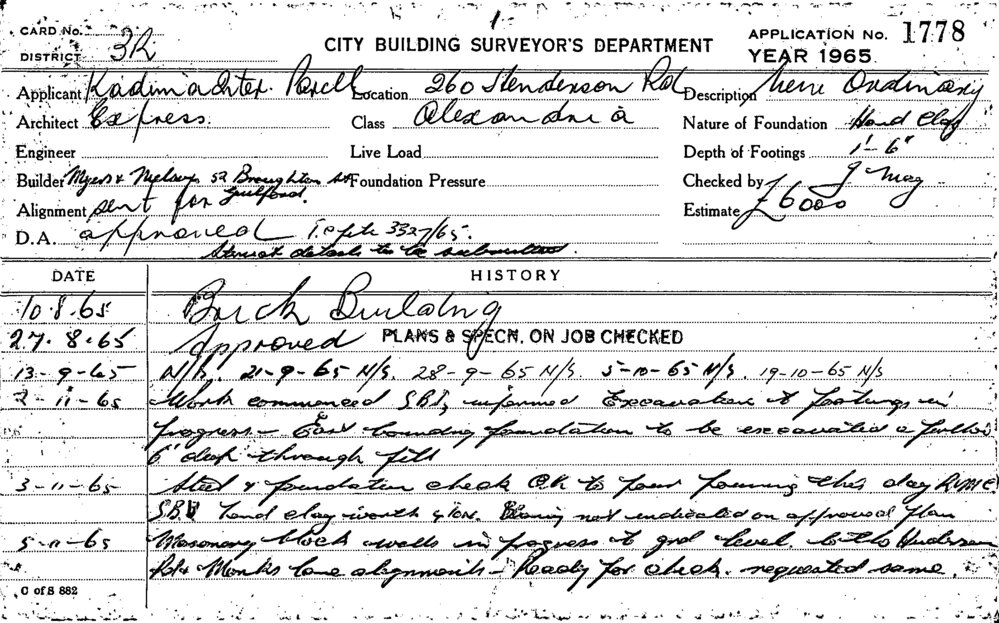 CARD No.
DISTRICT 3R
CITY BUILDING SURVEYOR'S DEPARTMENT
APPLICATION No. 1778
YEAR 1965
Applicant Location 260 Henderson Rd Description New Ordinary
Architect Express Class Alexandria Nature of Foundation Hard Clay
Engineer Live Load Depth of Footings 1'-6"
Builder Myers & 52 Broughton St Foundation Pressure Checked by
Guilford.
Alignment sent for Estimate £6000
D.A. approved T.P. file 3327/65.
Struct details to be submitted.
DATE HISTORY
10.8.65 Brick Building
27.8.65 Approved PLANS & SPECN. ON JOB CHECKED
13-9-65 N/S. 21-9-65 N/S. 28-9-65 N/S. 5-10-65 N/S. 19-10-65 N/S
2-11-65 Work commenced informed Excavation & footings in
progress - East foundation to be excavated a further
6" deep through fill
3-11-65 Steel & foundation check OK to pour pouring this day
hard clay not indicated on approved plan
5-11-65 Masonary block walls in progress to grd level. both Henderson
Rd & Monks lane alignments - Ready for check. requested same.
C of S 882